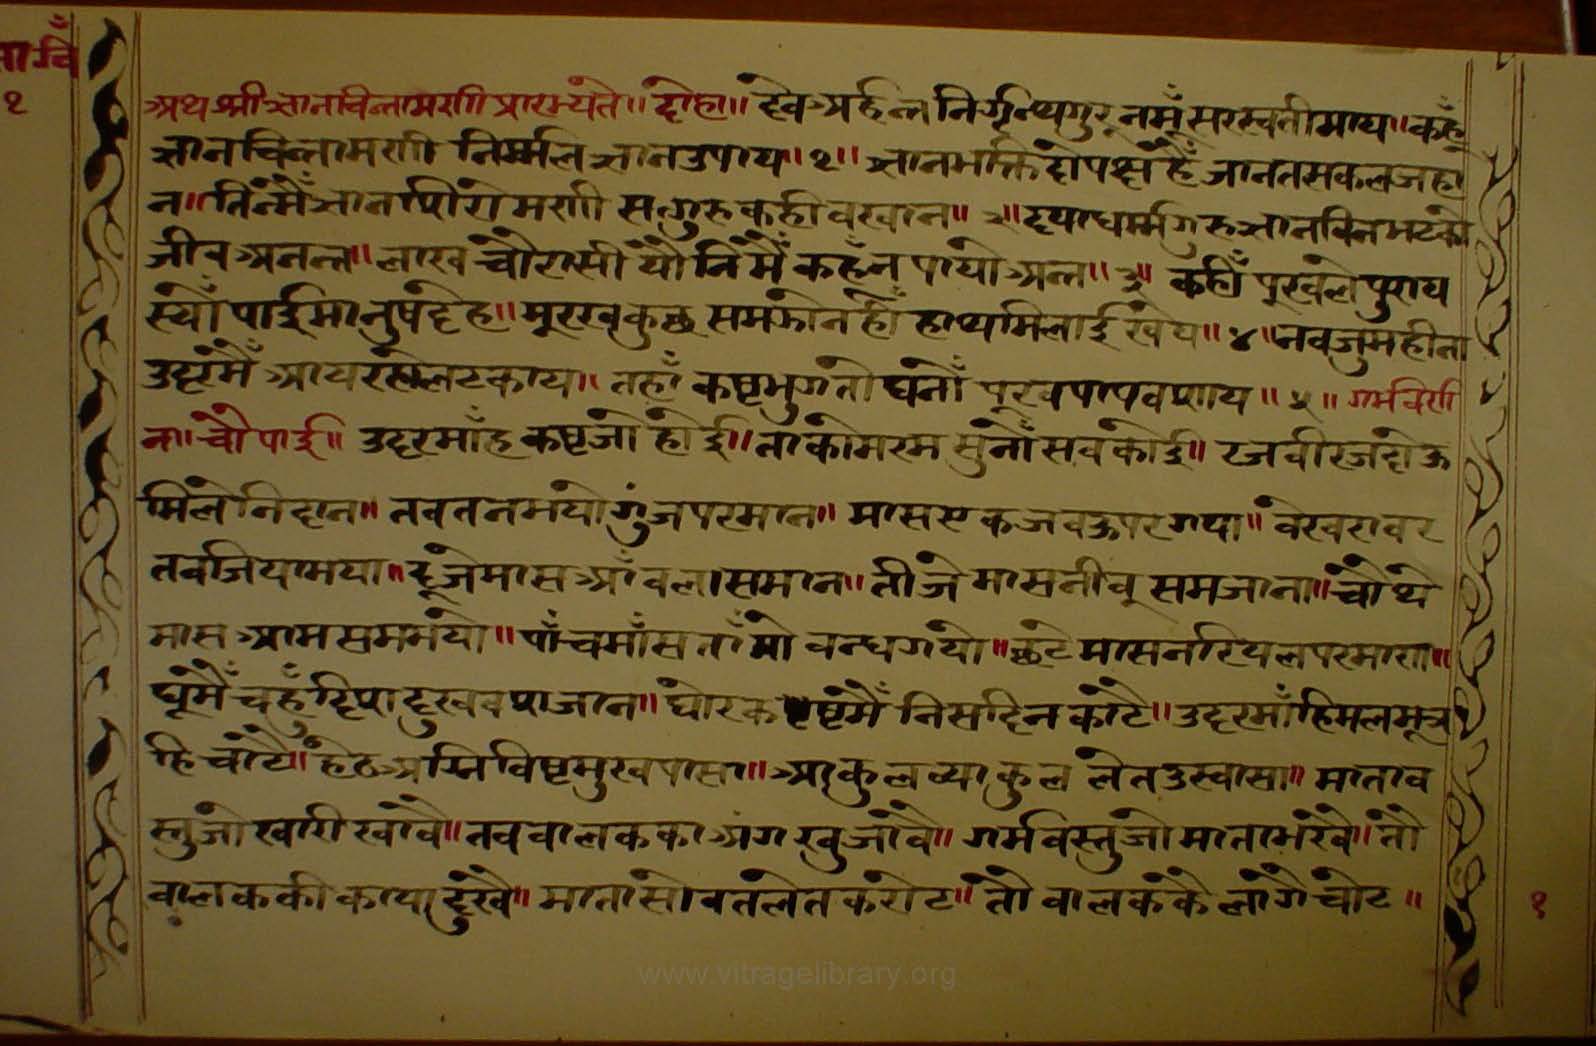 ज्ञा॰चिं
१
अथ श्री ज्ञानचिन्तामरणी प्रारभ्यंते॥ दोहा॥ देव अर्हन्त निर्ग्रन्थ गुरू नमूँ सरस्वती माय॥ कहूँ
ज्ञानचिन्तामरणी निर्म्मल ज्ञान उपाय॥१॥ ज्ञान भक्ति दो पक्ष हैं जानत सकल जहा
न॥ तिन्मैं ज्ञान शिरोमरणी सत्गुरु कही वखान॥२॥ दया धर्म्म गुरु ज्ञान विन भटको
जीव अनन्त॥ लाख चौरासी यौनि मैं कहँ न पायो अन्त॥३॥ कहीं पूरवले पुराय
स्यों पाई मानुष देह॥ मूरख कुछ समझो नहीं हाथ मिलाई खेय॥४॥ नव जु महीना
उदर मैं आय रह्यो लटकाय॥ तहाँ कष्ट भुगतो घनों पूरव पाप वशाय॥५॥ गर्भचिरणी
ना॥ चौपाई॥ उदर माँह कष्ट जो होई॥ ताको मरम सुनों सव कोई॥ रज वीरज दोऊ
मिले निदान॥ तव तन भयो गुंज परमान॥ मास एक जव ऊपर गया॥ वेर वरावर
तव जिया भया॥ दूजे मास आँवला समान॥ तीजे मास नीवू सम जाना॥ चौथे
मास आम सम भयो॥ पाँच माँस ताँमो वन्ध गयो॥ छटे मास नारियल परमारण॥
घूमैं चहूँ दिशा दुख वश जान॥ घोर कष्ट मैं निस दिन काटै॥ उदर माँहि मल मूत्र
हि चाटै॥ हेठ अग्नि विष्ट मुख पासा॥ आकुल व्याकुल लेत उस्वासा॥ माता व
स्तु जो खारी खावै॥ तव वालक का अंग खुजावै॥ गर्म विस्तु जो माता भखै॥ तौ
वालक की काया दुखै॥ माता सोवत लेत करोट॥ तो वालक कै लागै चोट॥
१
www.vitragelibrary.org